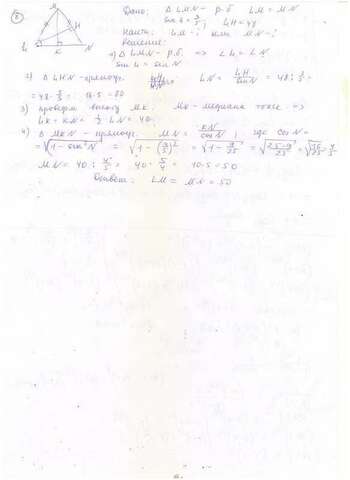 8
M
H
L K N
Дано: Δ LMN - р.б. LM = MN
sin L = 3/5; LH = 48
Найти: LM - ? или MN - ?
Решение:
1) Δ LMN - р.б. => ∠L = ∠N
sin L = sin N
2) Δ LHN - прямоуг. LN = LH/sin N = 48 : 3/5 =
= 48 · 5/3 = 16·5 = 80
3) проведем высоту MK. MK - медиана тоже =>
LK = KN = 1/2 LN = 40.
4) Δ MKN - прямоуг. MN = KN/cos N ; где cos N =
= √(1 - sin² N) = √(1 - (3/5)²) = √(1 - 9/25) = √((25-9)/25) = √(16/25) = 4/5
MN = 40 : 4/5 = 40 · 5/4 = 10·5 = 50
Ответ: LM = MN = 50